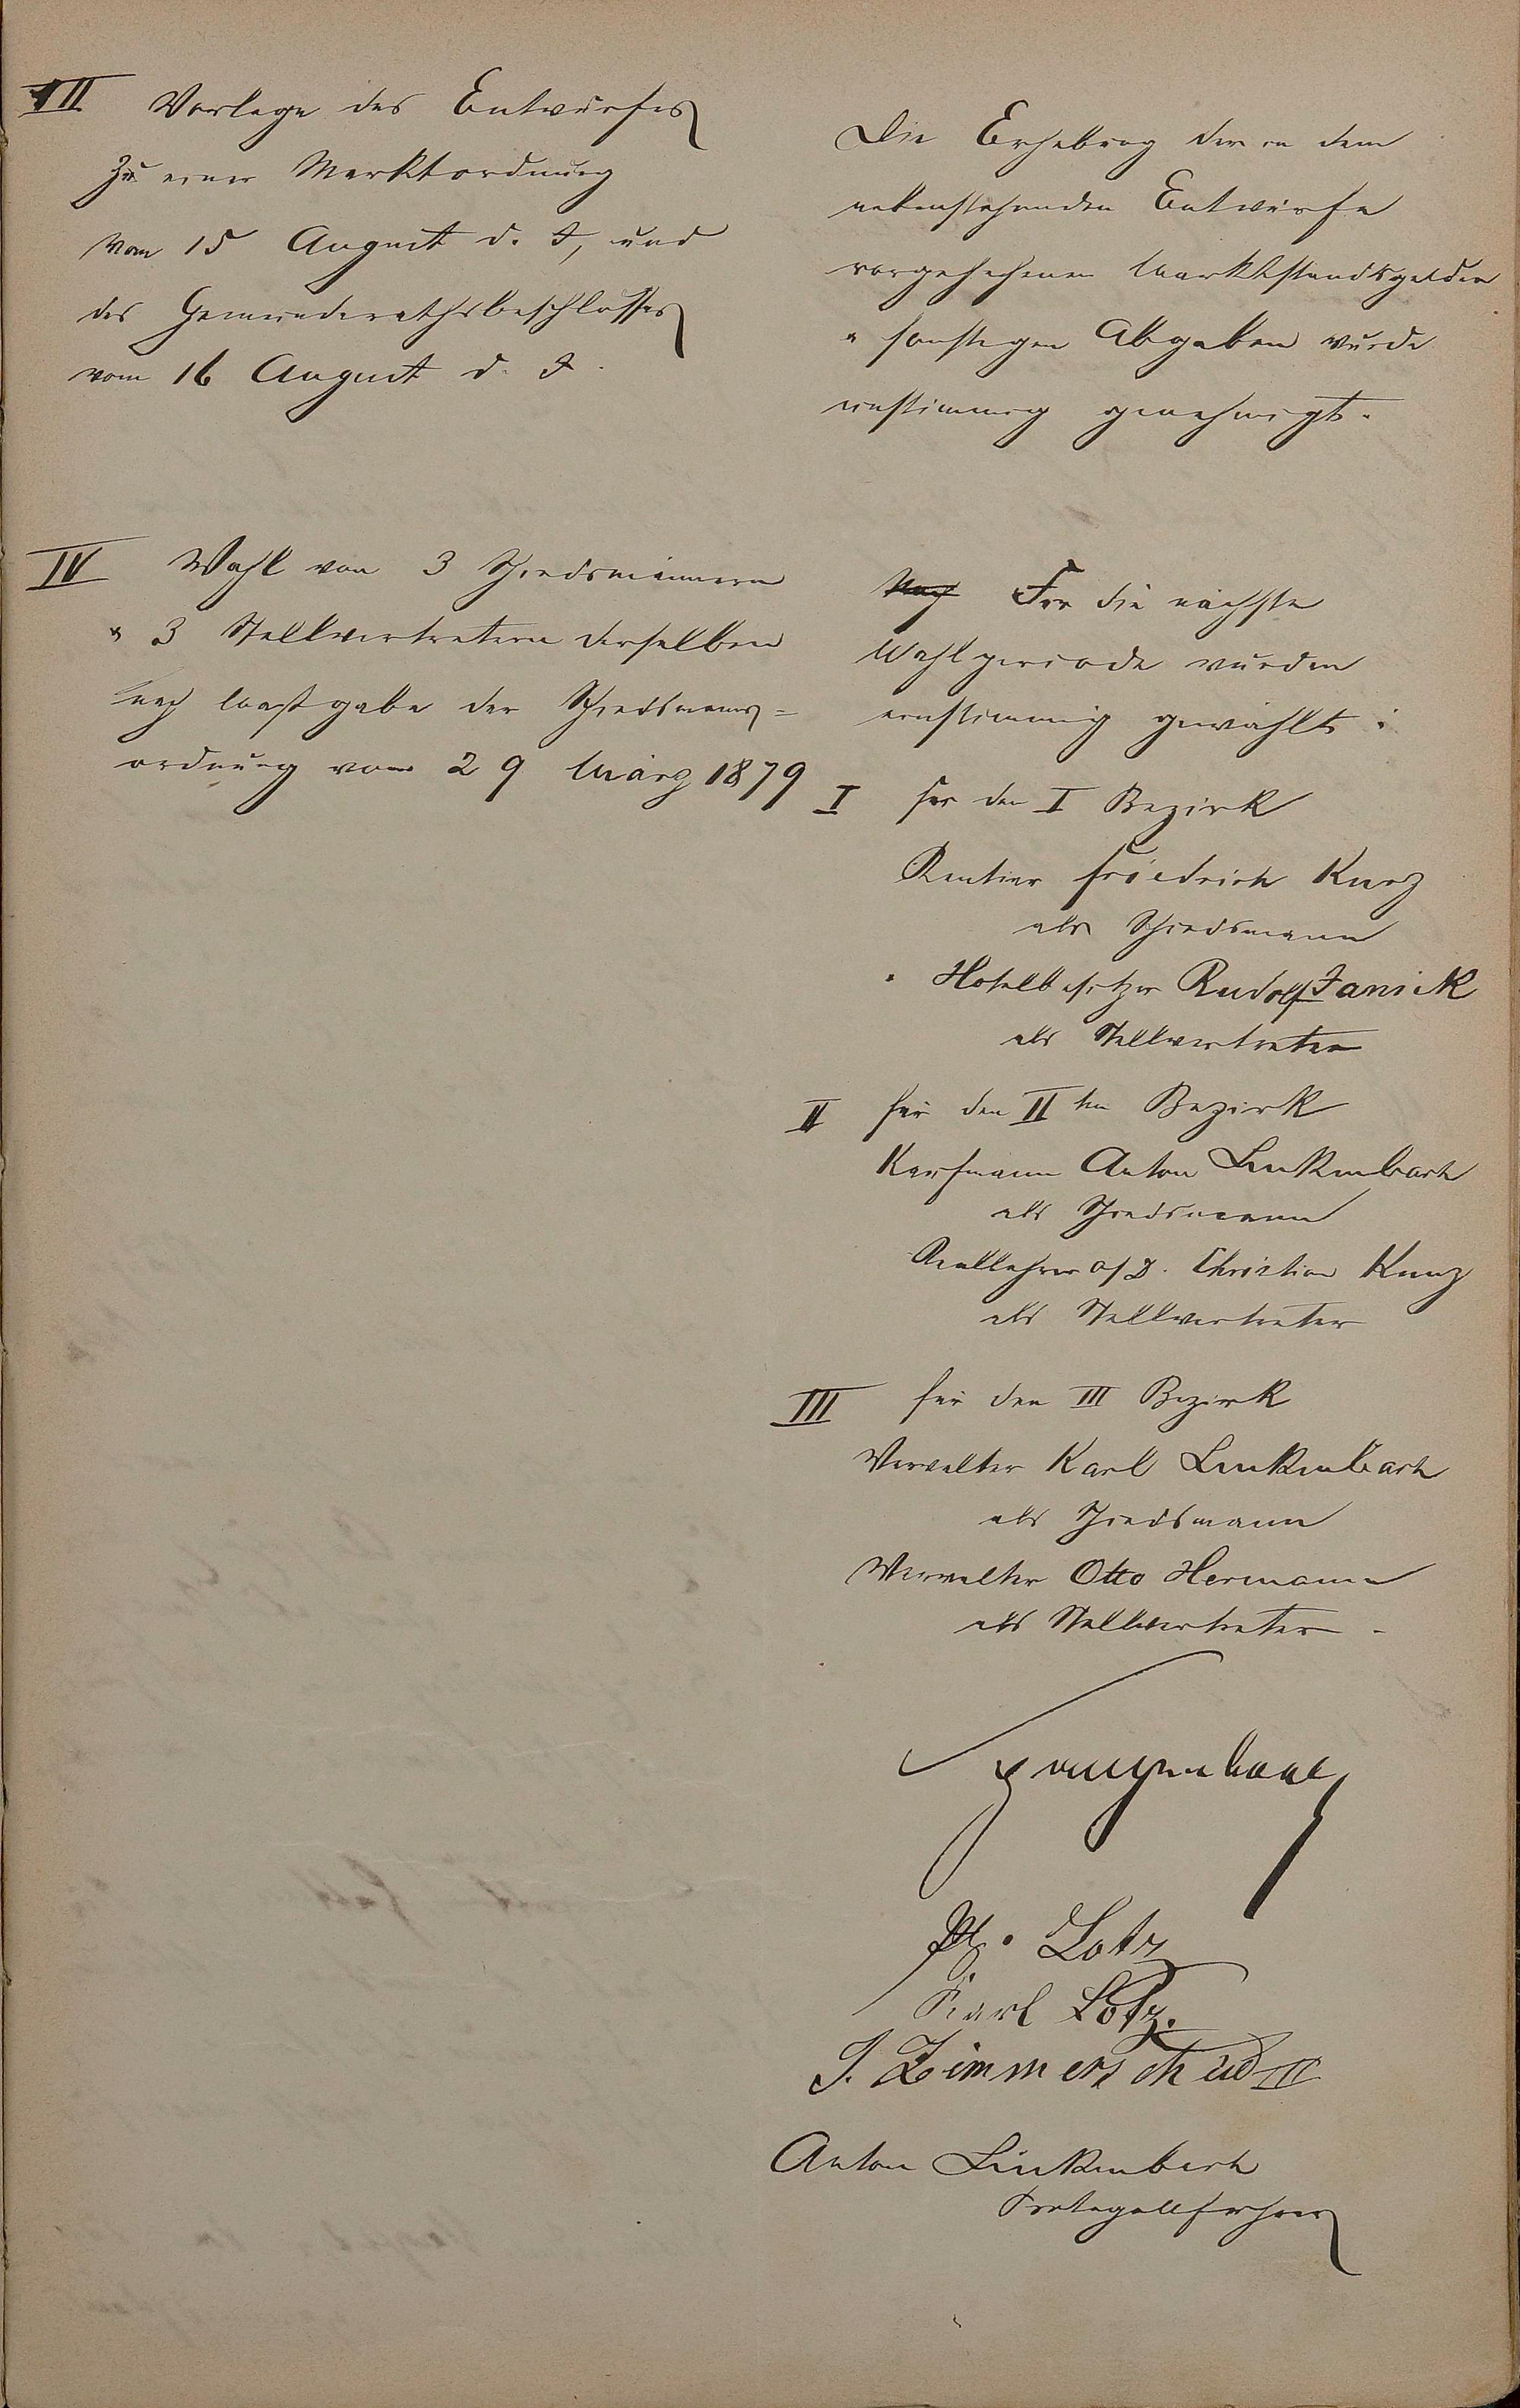 III Vorlage des Entwurfes
zu einer Marktordnung
vom 15 August d. J, und
des Gemeinderathsbeschlusses
vom 16 August d. J.
Die Erhebung der in dem
nebenstehenden Entwurfe
vorgesehenen Marktstandsgelder
u sonstigen Abgaben wurde
einstimmig genehmigt.
IV Wahl von 3 Schiedsmännern
u 3 Stellvertretern derselben
nach Maßgabe der Schiedsmanns=
ordnung vom 29 März 1879
Nach Für die nächste
Wahlperiode wurden
einstimmig gewählt:
I für den I Bezirk
Rentier Friedrich Kurz
als Schiedsmann
" Hotelbesitzer Rudolf Janick
als Stellvertreter
II für den IIten Bezirk
Kaufmann Anton Linkenbach
als Schiedsmann
Reallehrer a/D. Christian Kunz
als Stellvertreter
III für den III Bezirk
Verwalter Karl Linkenbach
als Schiedsmann
Verwalter Otto Hermann
als Stellvertreter.
Ph. Lotz
Karl Lotz.
J. Zimmerschied III
Anton Linkenbach
Protogollführer